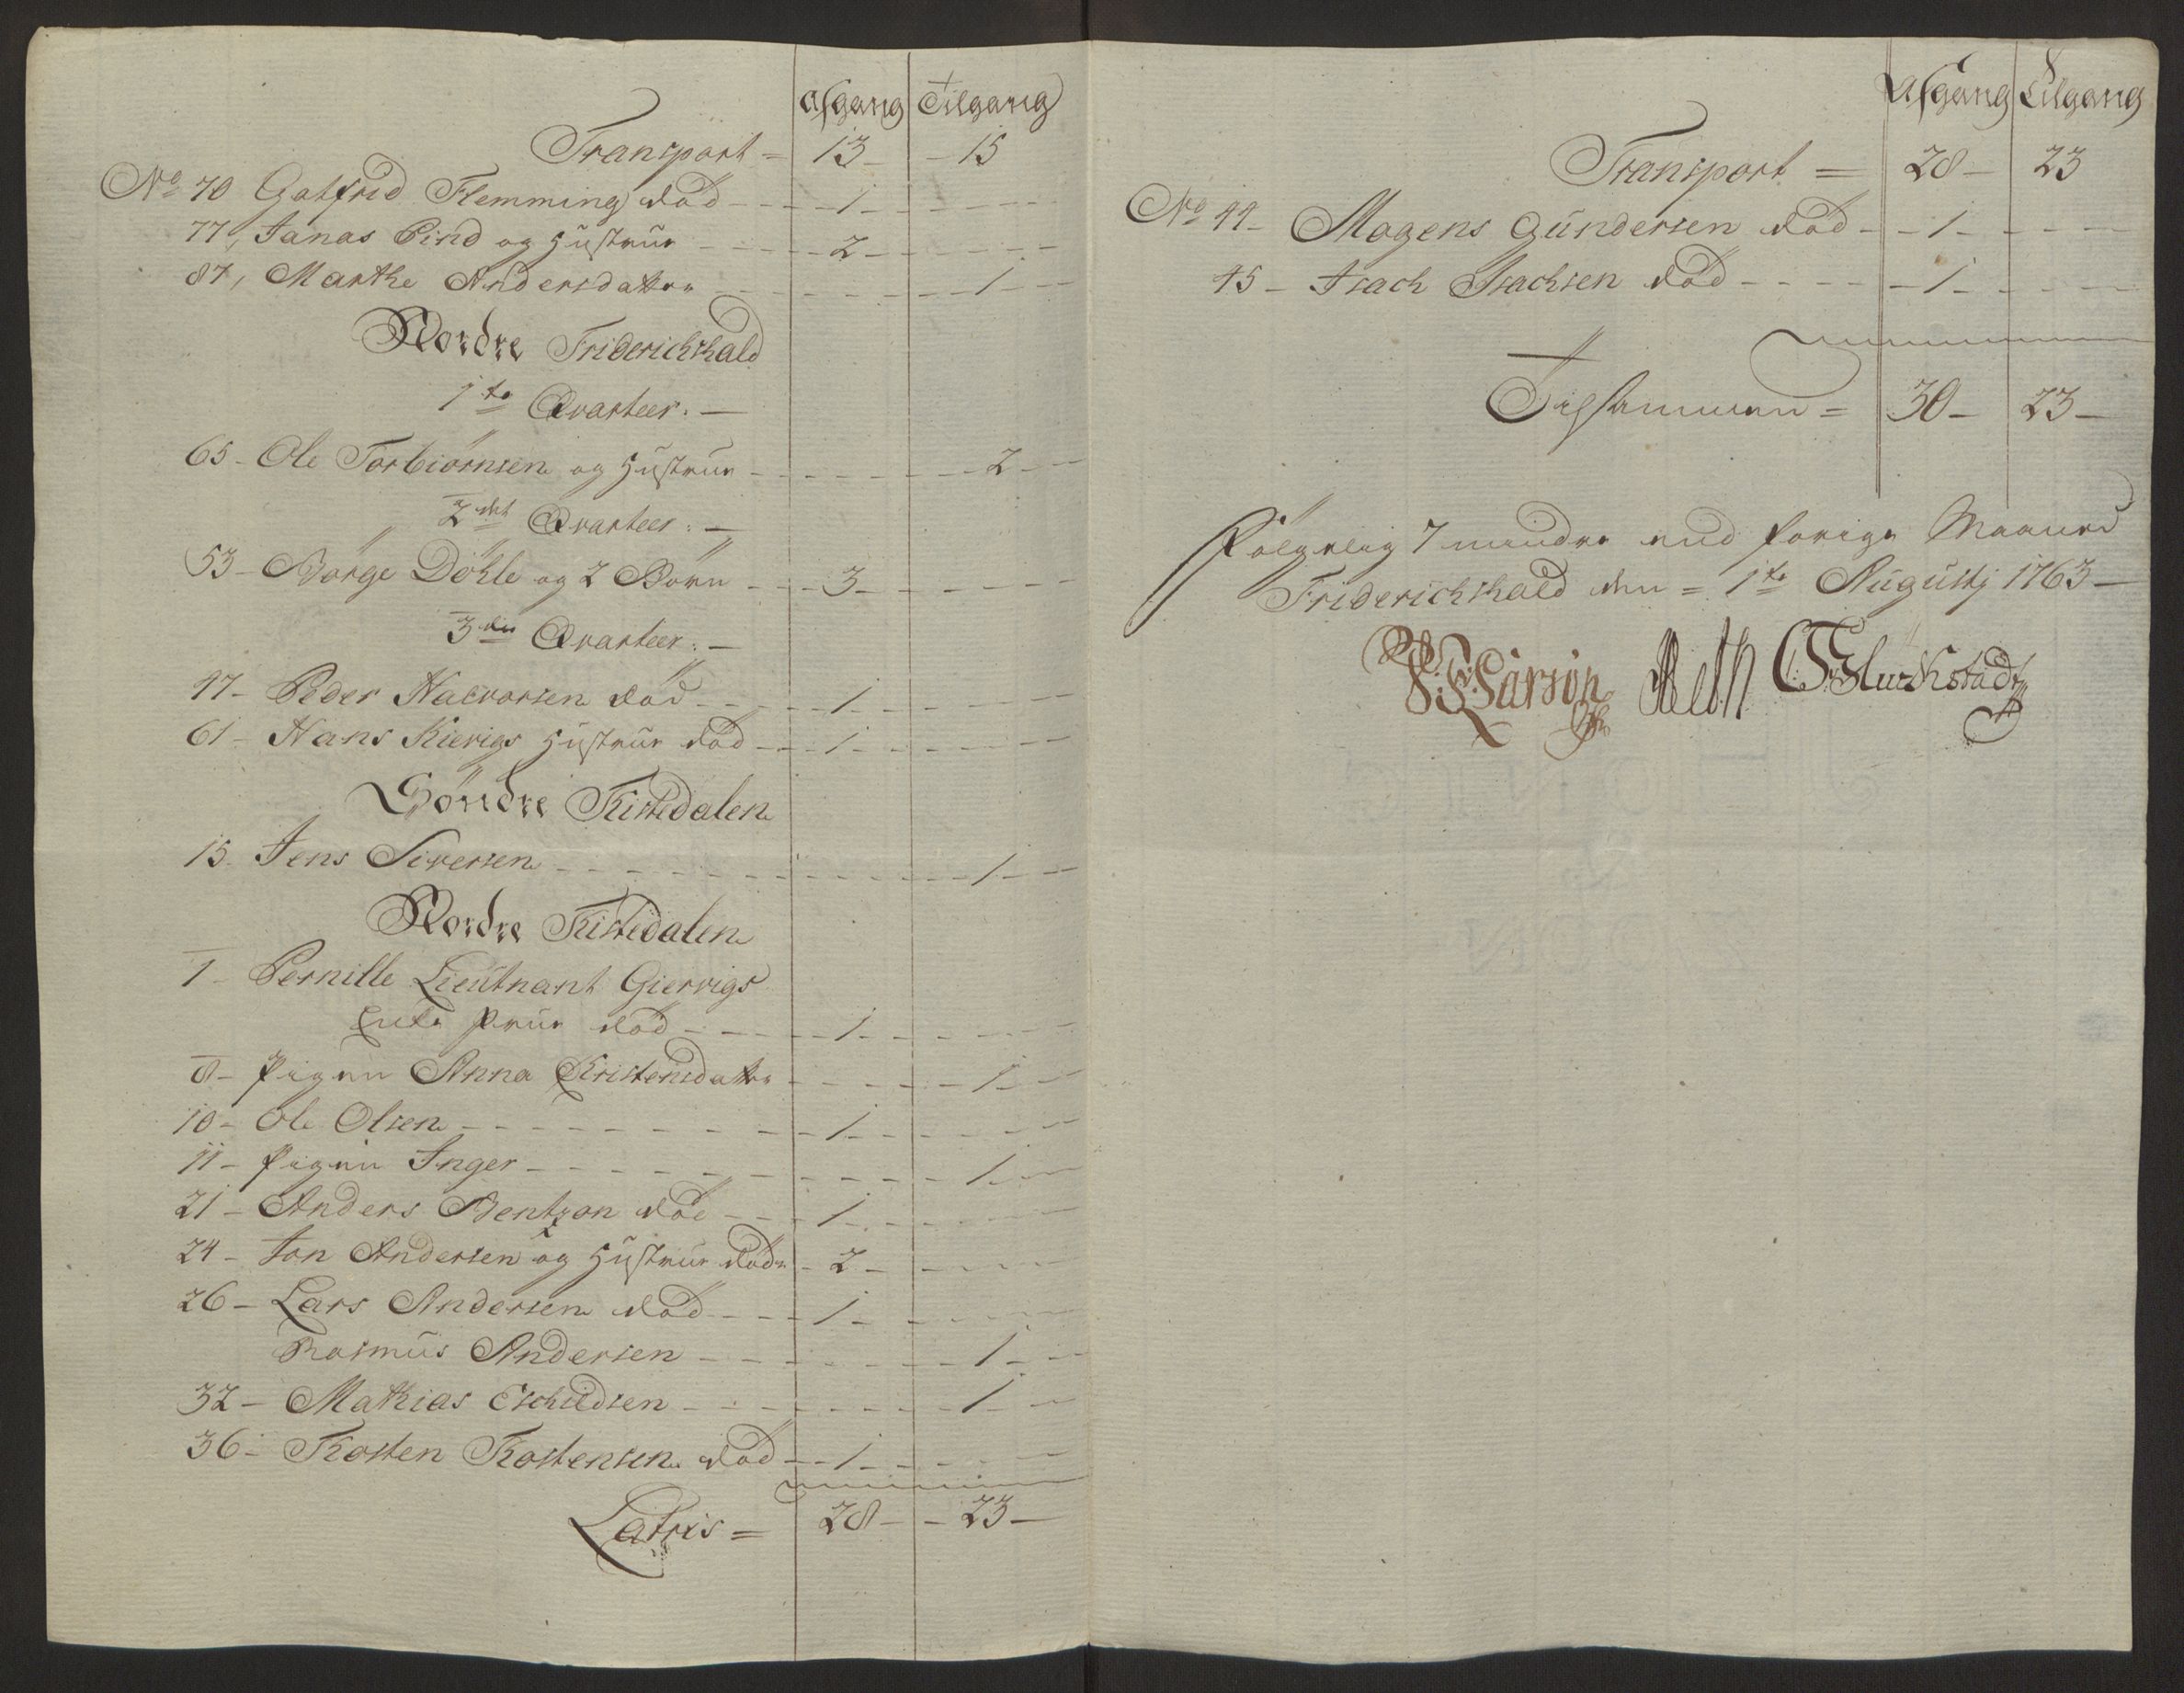 Afgang Tilgang
Transport = 13 - - 15
No 70 Gotfrid Flemming död - - - 1 - - -
77, Jonas Pind og Hustrue - - - 2 - - -
87, Marthe Andersdatter - - - 1 - -
Nordre Friderichshald
1te Qvarteer. -
65 - Ole Torbiörnsen og Hustrue - - - 2 - -
2det Qvarteer. -
53 - Börge Döhle og 2 Börn - - - 3 - - -
3die Qvarteer. -
47 - Peder Halvorsen död - - - 1 - - -
61 - Hans Kierigs Hustrue död - - 1 - - -
Söndre Tistedalen
15. Jens Siversen - - - 1 - -
Nordre Tistedalen
1 - Pernille Lieutnant Giervigs
Enke Frue död - - - 1 - - -
8 - Pigen Anna Christensdatter - - - 1 - -
10 - Ole Olsen - - - 1 - - -
11 - Pigen Inger - - - 1 - -
21 - Anders Bentzon död - - - 1 - - -
24 - Jon Andersen og Hustrue döde - 2 - - -
26 - Lars Andersen död - - - 1 - - -
Rasmus Andersen - - - 1 - -
32 - Mathias Eschildsen - - - 1 - -
36 - Tosten Tostensen död - - 1 - - -
Latris = 28 - - 23 -
Afgang Tilgang
Transport = 28 - 23
No 44 - Mogens Gundersen död - - 1 - - -
45 - Isach Isachsen död - - - 1 - - -
Tilsammen = 30 - 23 -
Fölgelig 7 mindre end forige Maaned
Friderichshald den = 1te Augustj 1763 -
Larson Reth Gluckstadt